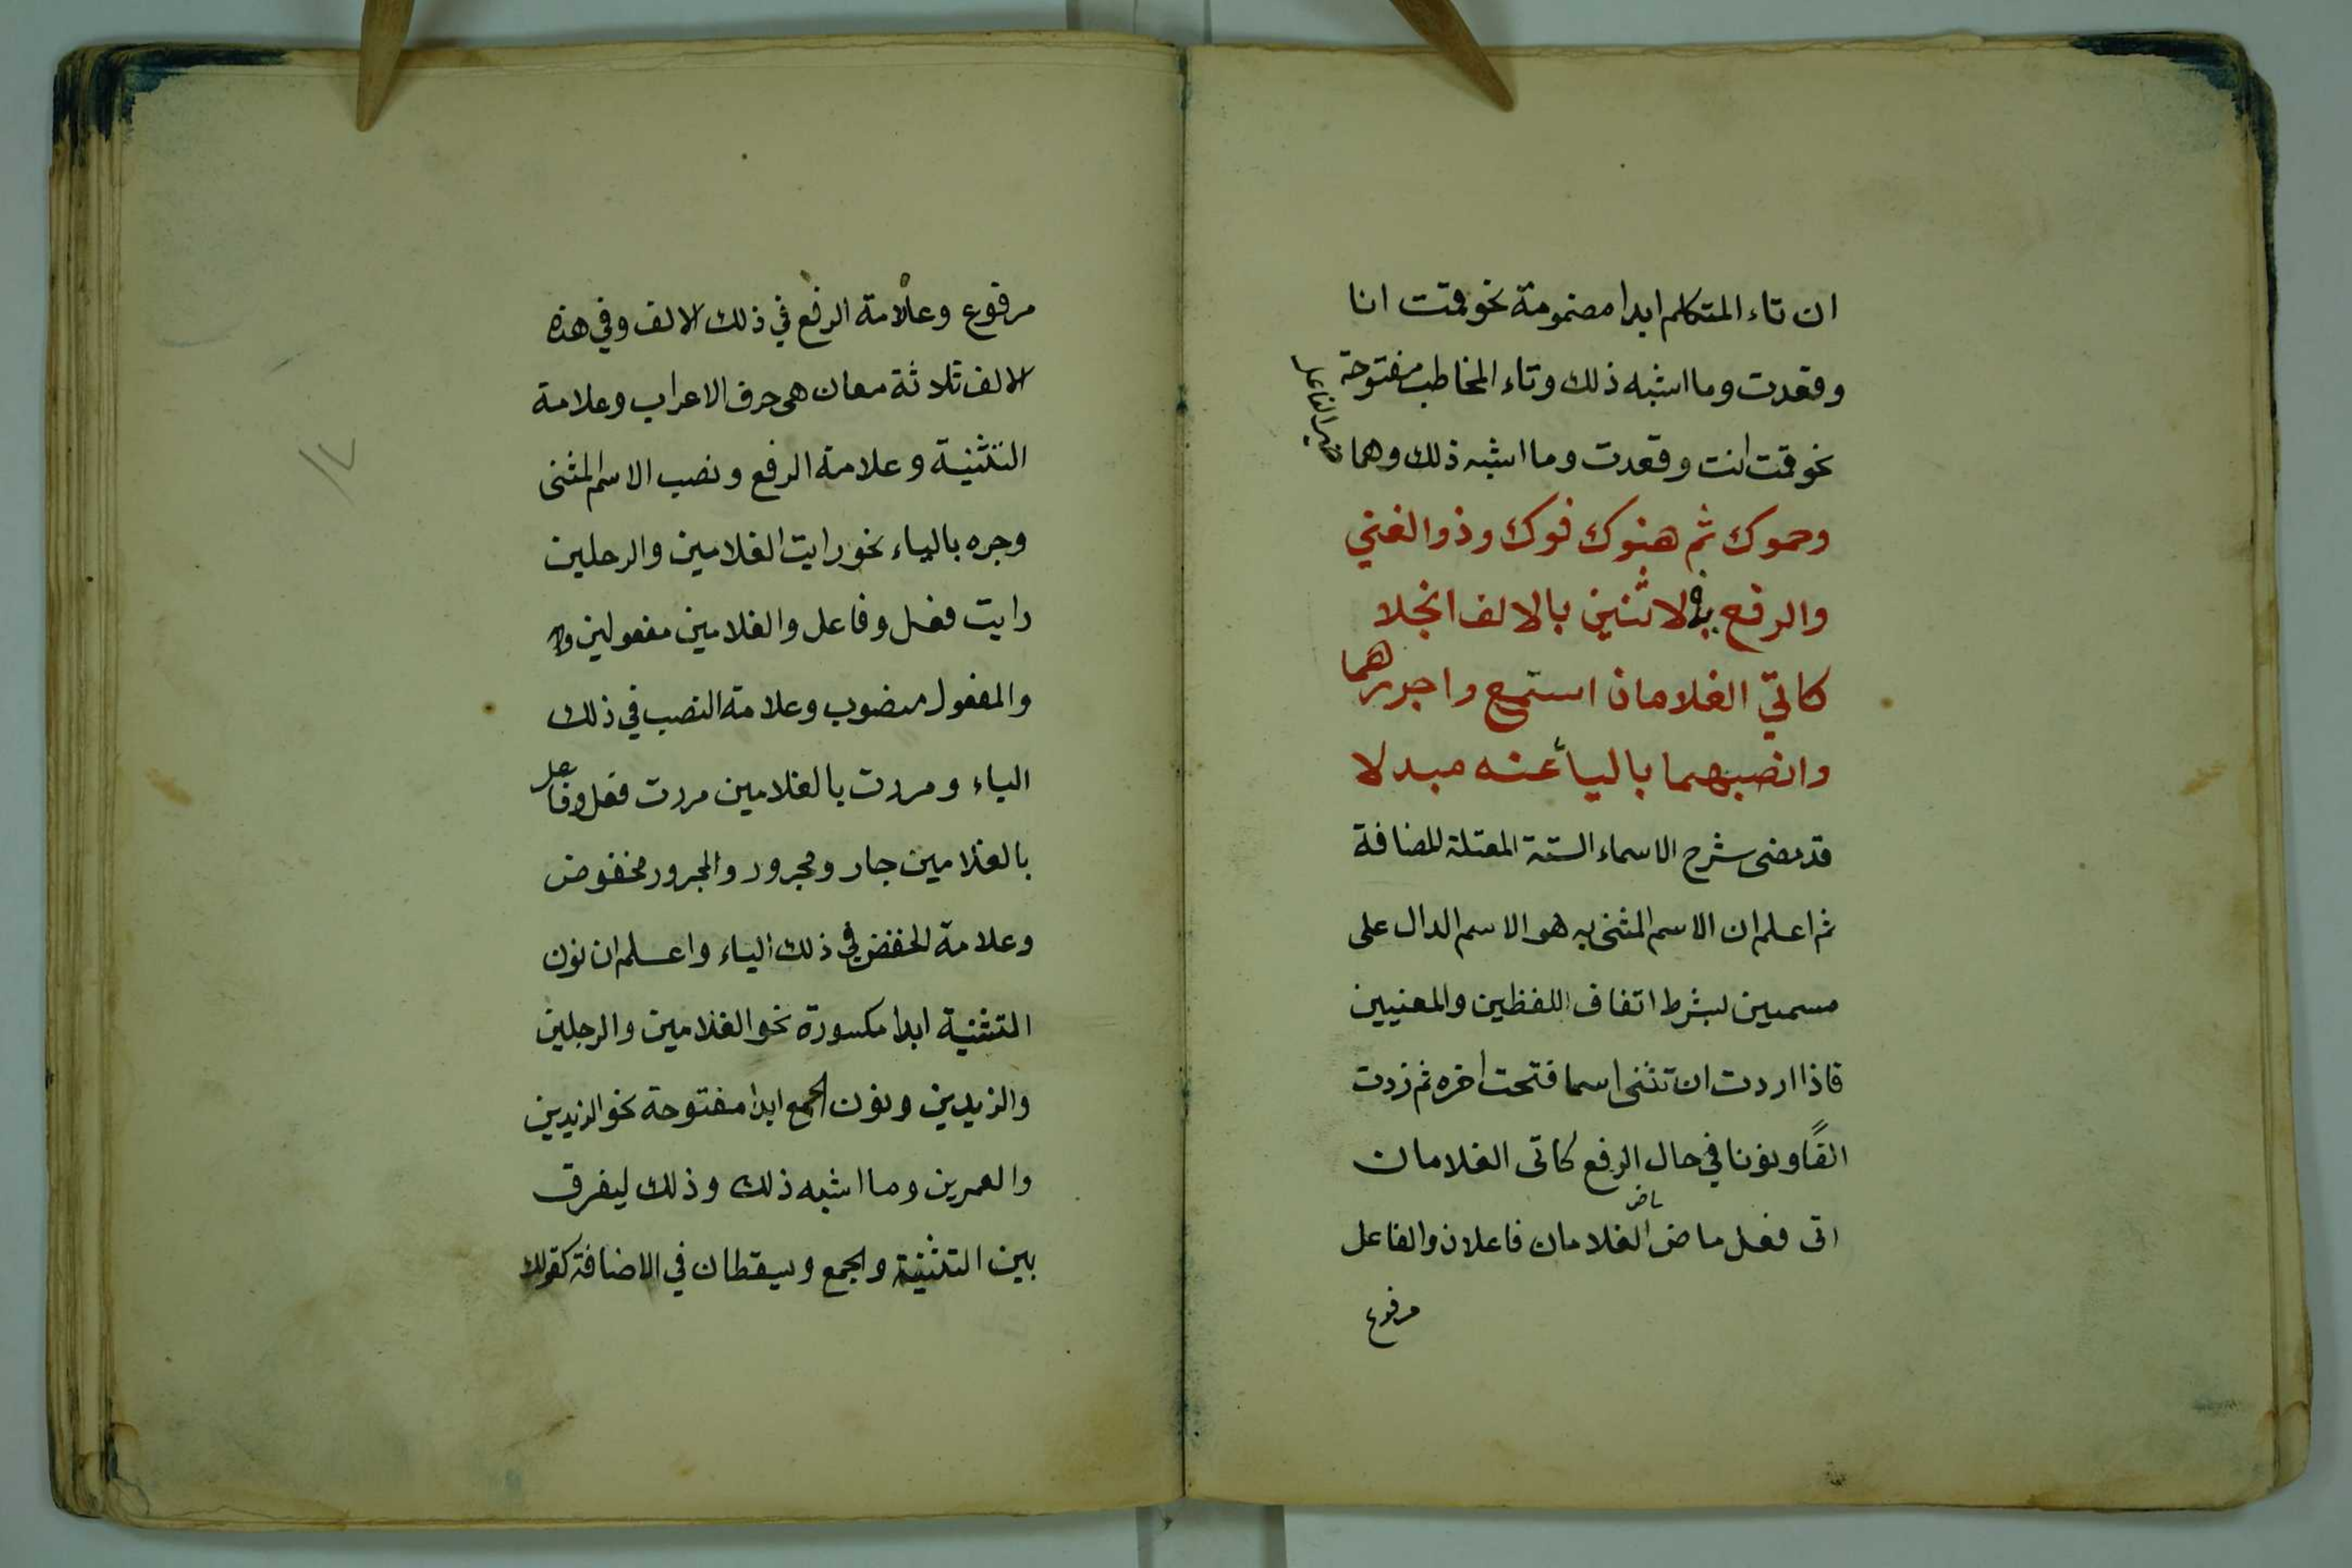 ان تاء المتكلم ابدا مضمومة نحو قمت انا
وقعدت وما اشبه ذلك وتاء المخاطب مفتوحة
نحو قمت انت وقعدت وما اشبه ذلك وهما
ضمير الفاعل
وحموك ثم هنوك فوك وذو الغني
والرفع في الاثنين بالالف انجلا
كاتي الغلامان استمع واجررهما
وانصبهما بالياء عنه مبدلا
قد مضى شرح الاسماء الستة المعتلة المضافة
ثم اعلم ان الاسم المثنى به هو الاسم الدال على
مسميين بشرط اتفاق اللفظين والمعنيين
فاذا اردت ان تثنى اسما فتحت اخره ثم زدت
الفًا ونونا في حال الرفع كاتى الغلامان
اتى فعل ماض الغلامان فاعلان والفاعل
مرفوع
مرفوع وعلامة الرفع في ذلك الالف وفي هذه
الالف ثلاثة معان هي حرف الاعراب وعلامة
التثنية وعلامة الرفع ونصب الاسم المثنى
وجره بالياء نحو رايت الغلامين والرجلين
رايت فعل وفاعل والغلامين مفعولين
والمفعول منصوب وعلامة النصب في ذلك
الياء ومررت بالغلامين مررت فعل وفاعل
بالغلامين جار ومجرور والمجرور مخفوض
وعلامة الخفض في ذلك الياء واعلم ان نون
التثنية ابدا مكسورة نحو الغلامين والرجلين
والزيدين ونون الجمع ابدا مفتوحة نحو الزيدين
والعمرين وما اشبه ذلك وذلك ليفرق
بين التثنية والجمع ويسقطان في الاضافة كقولك
١٧